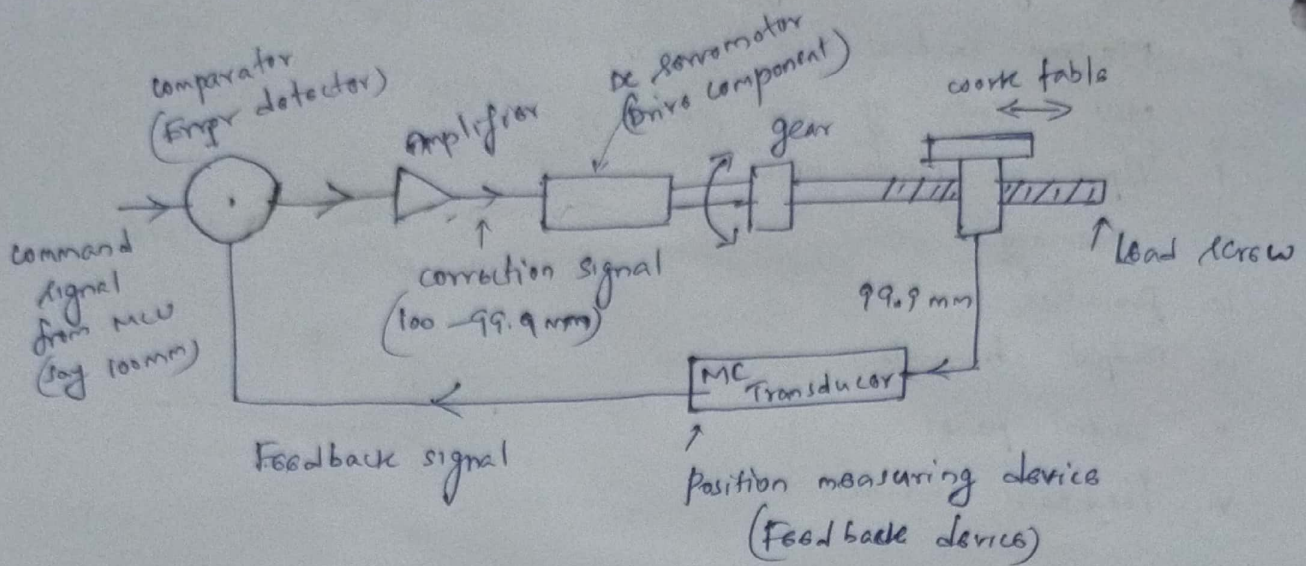 comparator
(Error detector)
Amplifier
DC servomotor
(Drive component)
gear
work table
command
signal
from MCU
(say 100mm)
correction signal
(100 - 99.9 mm)
99.9 mm
Lead screw
MC
Transducer
Feedback signal
Position measuring device
(Feed back device)